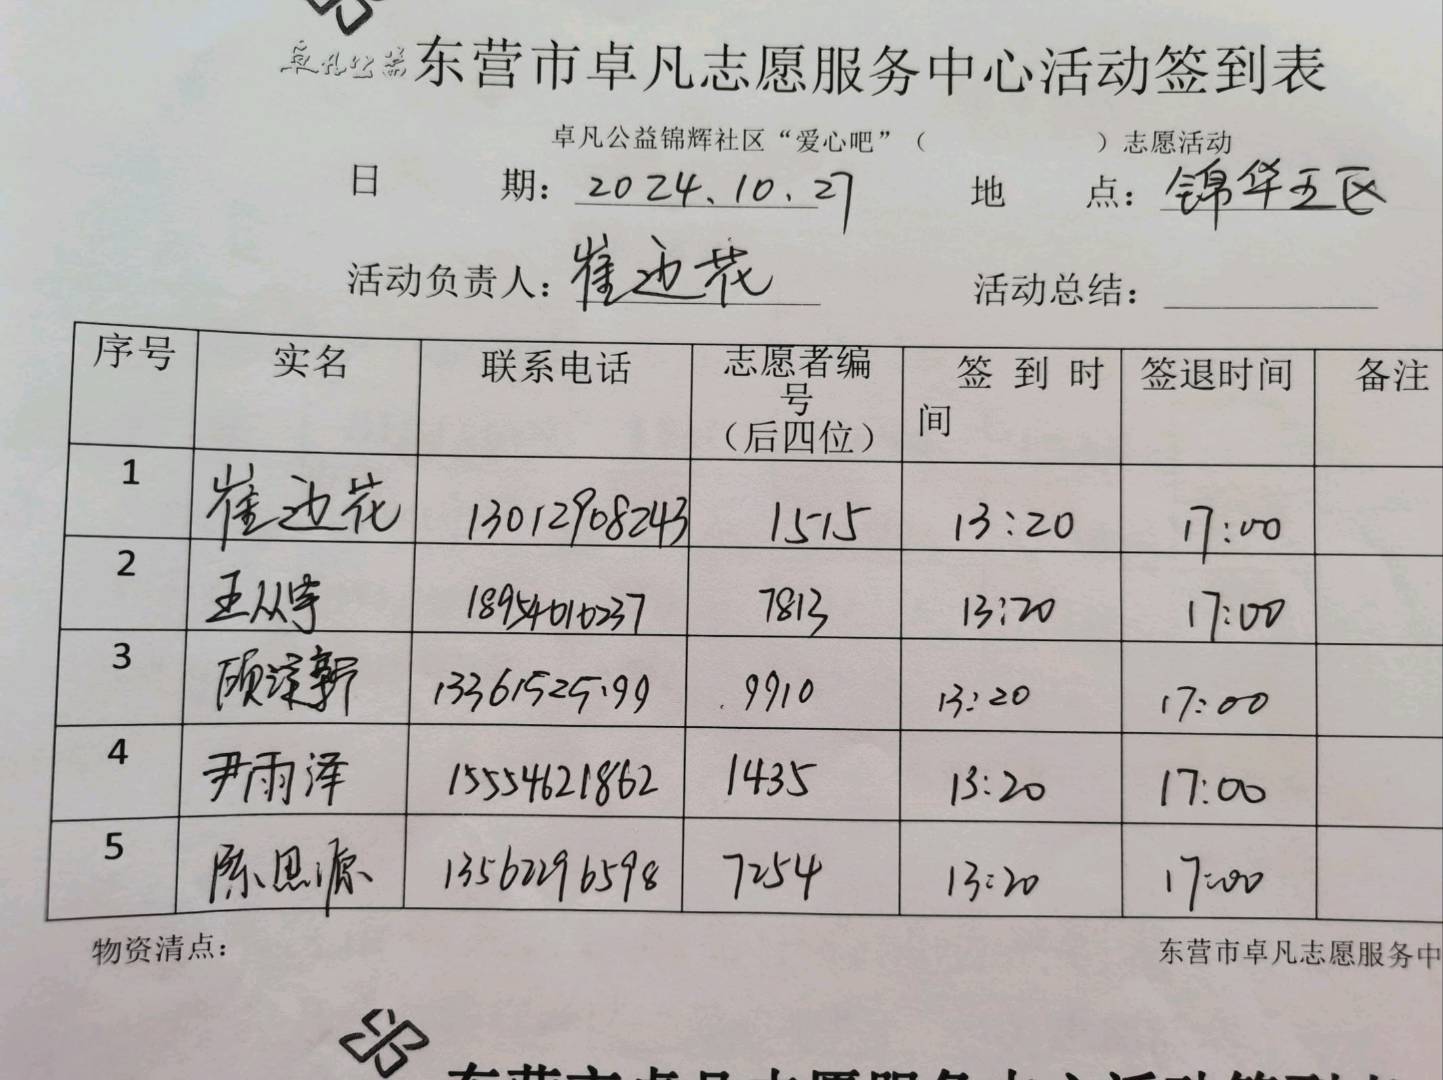 卓凡公益 东营市卓凡志愿服务中心活动签到表
卓凡公益锦辉社区“爱心吧”（ ）志愿活动
日 期：2024.10.27 地 点：锦华五区
活动负责人：崔迎花 活动总结：
序号 实名 联系电话 志愿者编号（后四位） 签到时间 签退时间 备注
1 崔迎花 13012908243 1515 13:20 17:00
2 王从宇 18954610237 7813 13:20 17:00
3 顾泽新 13361525199 9910 13:20 17:00
4 尹雨泽 15554621862 1435 13:20 17:00
5 陈思源 13562296598 7254 13:20 17:00
物资清点： 东营市卓凡志愿服务中